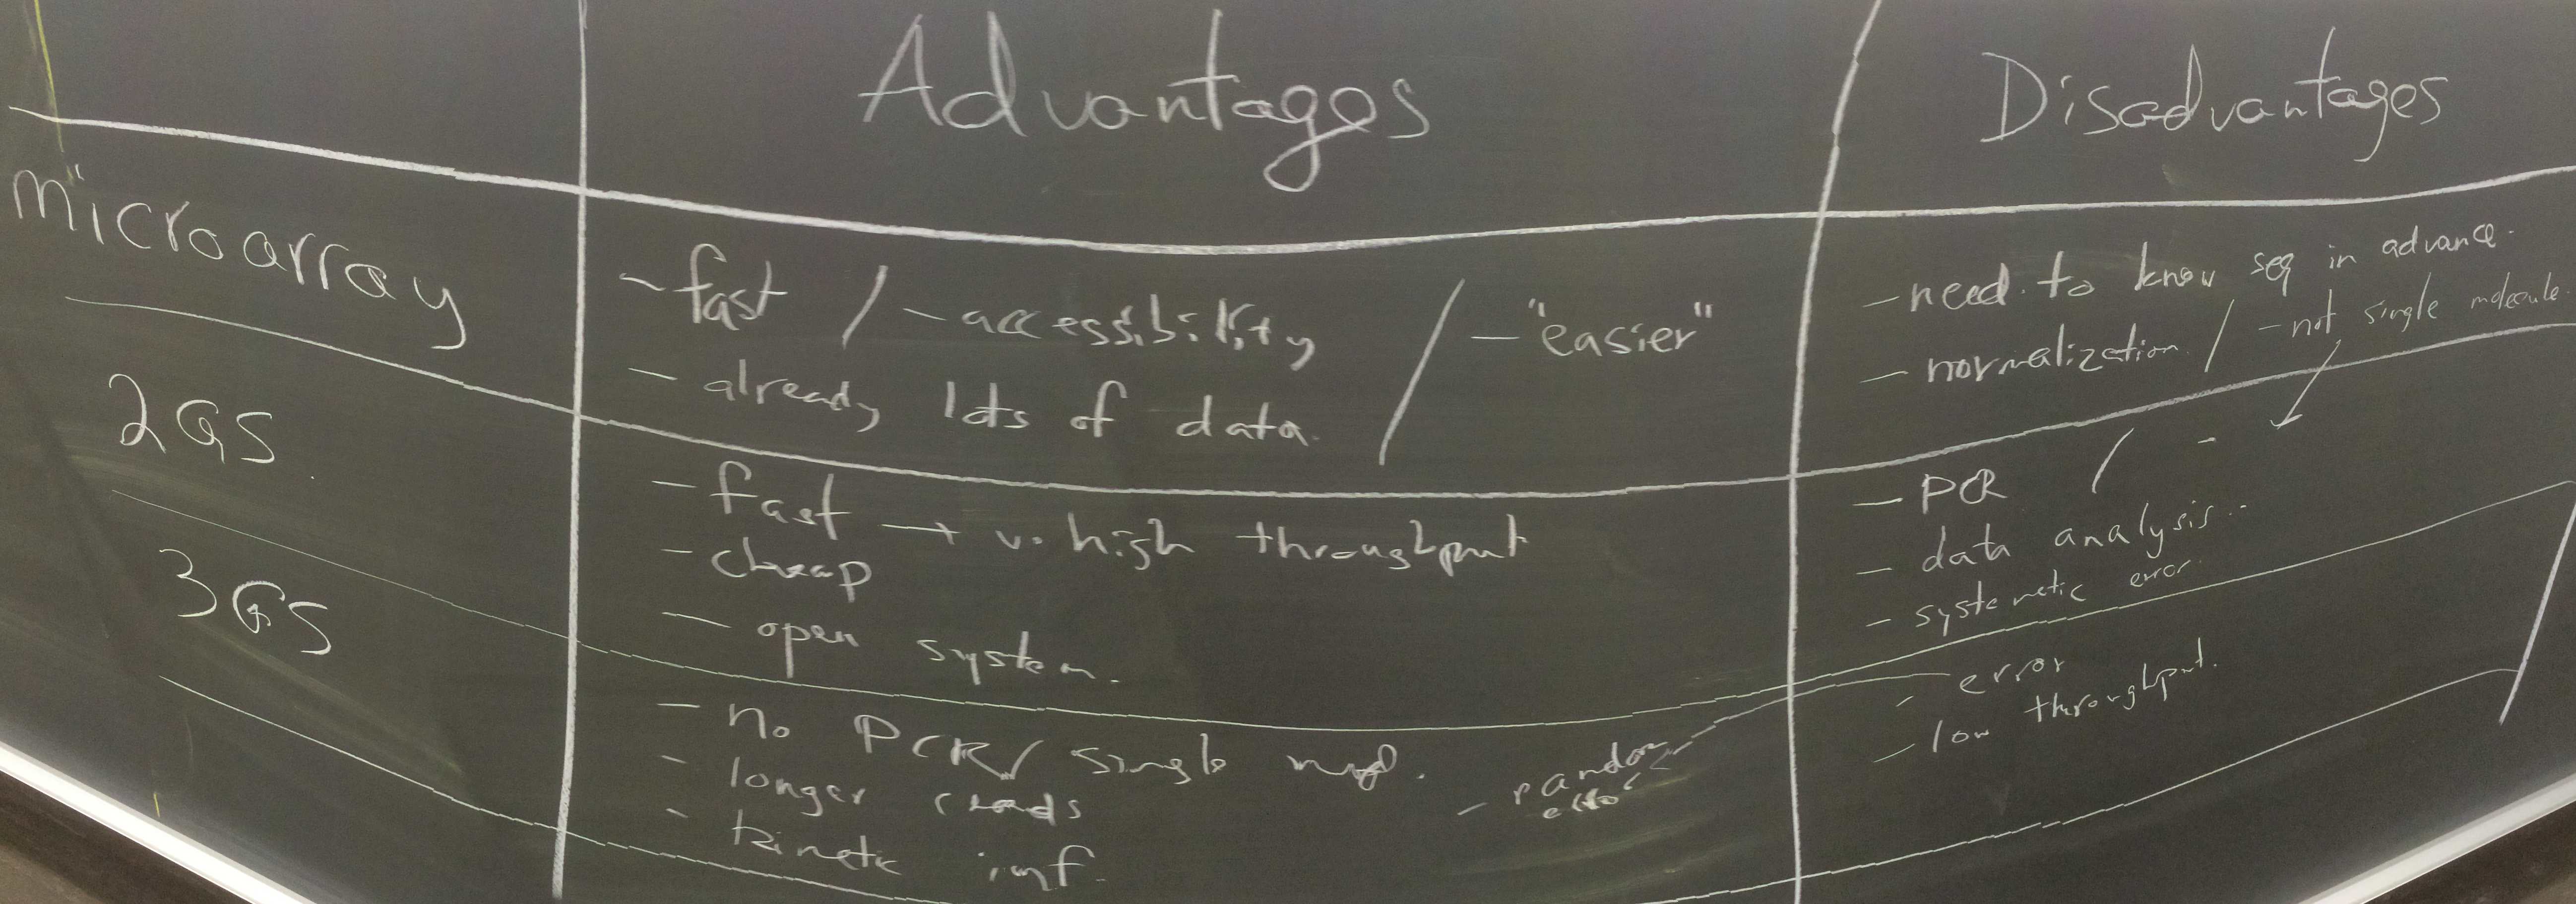 Advantages
Disadvantages
microarray
- fast / - accessibility / - "easier"
- already lots of data.
- need to know seq in advance.
- normalization. / - not single molecule.
2GS.
- fast → v. high throughput
- cheap
- open system.
- PCR / -
- data analysis...
- systematic error.
3GS
- no PCR / single mol.
- longer reads
- kinetic inf.
- random
error
- error
- low throughput.